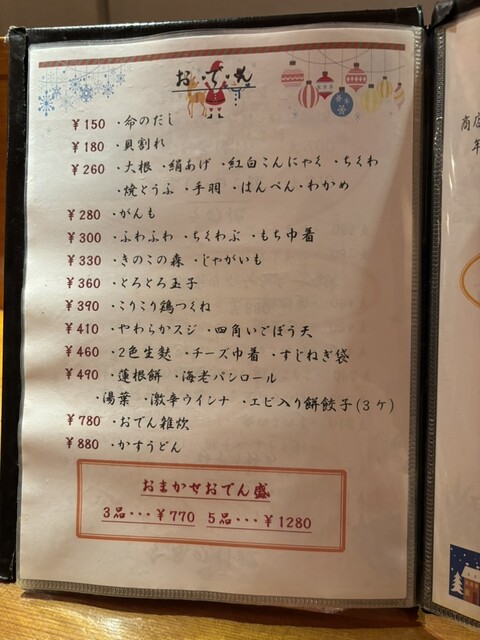 お・で・ん
¥150 ・命のだし
¥180 ・貝割れ
¥260 ・大根 ・絹あげ ・紅白こんにゃく ・ちくわ
・焼とうふ ・手羽 ・はんぺん・わかめ
¥280 ・がんも
¥300 ・ふわふわ ・ちくわぶ ・もち巾着
¥330 ・きのこの森 ・じゃがいも
¥360 ・とろとろ玉子
¥390 ・こりこり鶏つくね
¥410 ・やわらかスジ ・四角いごぼう天
¥460 ・2色生麩 ・チーズ巾着 ・すじねぎ袋
¥490 ・蓮根餅 ・海老パンロール
・湯葉 ・激辛ウインナ ・エビ入り餅餃子(3ケ)
¥780 ・おでん雑炊
¥880 ・かすうどん
おまかせおでん盛
3品・・・¥770 5品・・・¥1280
商店
年